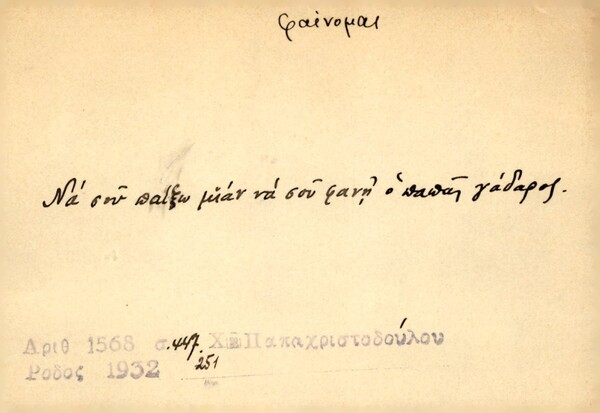 φαίνομαι
Νά σοῦ παίξω μιάν νά σοῦ φανῇ ὁ παπᾶς γάδαρος.
Αριθ 1568 σ. 447. Χ Παπαχριστοδούλου
Ρόδος 1932 251